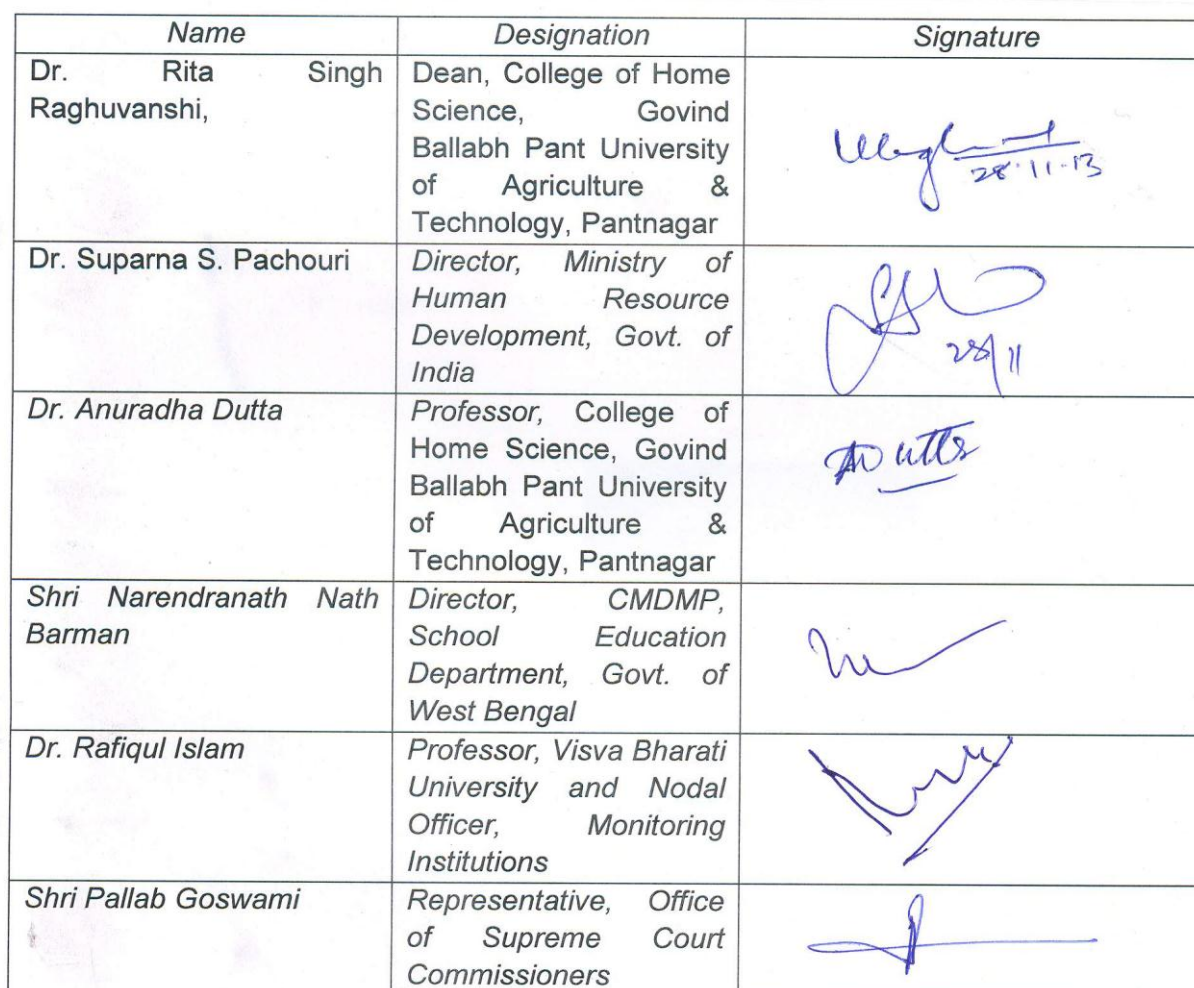 Name Designation Signature
Dr. Rita Singh
Raghuvanshi,
Dean, College of Home
Science, Govind
Ballabh Pant University
of Agriculture &
Technology, Pantnagar
28·11·13
Dr. Suparna S. Pachouri
Director, Ministry of
Human Resource
Development, Govt. of
India
28/11
Dr. Anuradha Dutta
Professor, College of
Home Science, Govind
Ballabh Pant University
of Agriculture &
Technology, Pantnagar
Shri Narendranath Nath
Barman
Director, CMDMP,
School Education
Department, Govt. of
West Bengal
Dr. Rafiqul Islam
Professor, Visva Bharati
University and Nodal
Officer, Monitoring
Institutions
Shri Pallab Goswami
Representative, Office
of Supreme Court
Commissioners